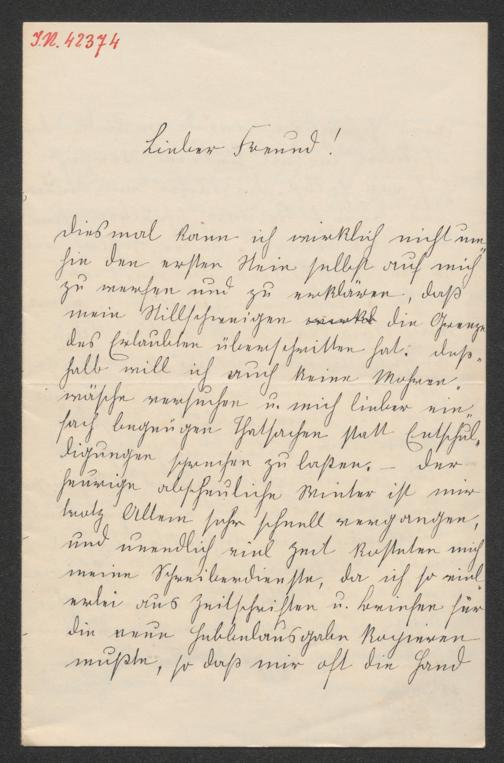 J.N. 42374
Lieber Freund!
Diesmal kann ich wirklich nicht um-
hin den ersten Stein selbst auf mich
zu werfen und zu erklären, daß
mein Stillschweigen die Grenze
des Erlaubten überschritten hat. Dess-
halb will ich auch keine Mohren-
wäsche versuchen u. mich lieber ein-
fach begnügen Thatsachen statt Entschul-
digungen sprechen zu laßen. – Der
heurige abscheuliche Winter ist mir
trotz Allem sehr schnell vergangen,
und unendlich viel Zeit kosteten mich
meine Schreiberdienste, da ich so viel-
erlei aus Zeitschriften u. Briefen für
die neue Hebbelausgabe kopieren
mußte, so daß mir oft die Hand